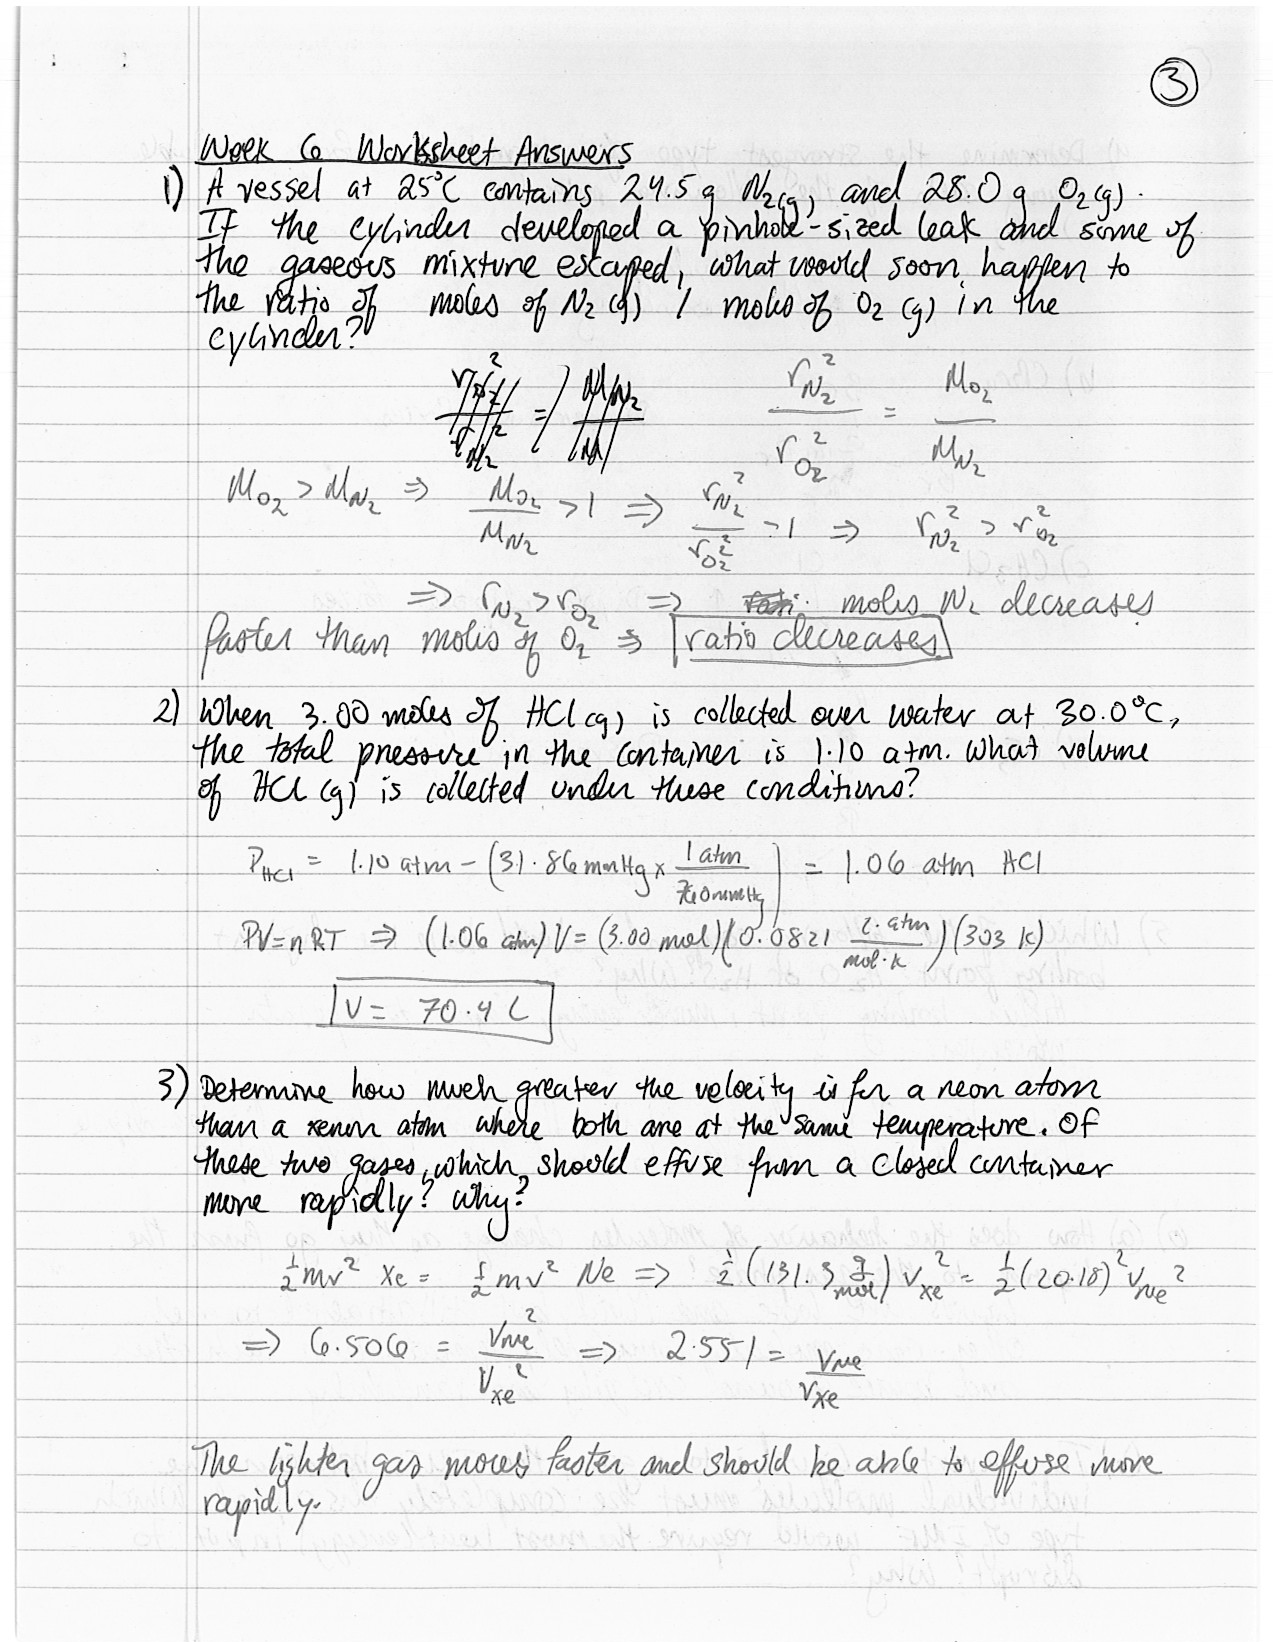 ③
Week 6 Worksheet Answers
1) A vessel at 25°C contains 24.5 g N₂(g) and 28.0 g O₂(g).
If the cylinder developed a pinhole-sized leak and some of
the gaseous mixture escaped, what would soon happen to
the ratio of moles of N₂(g) / moles of O₂(g) in the
cylinder?
r_N₂² / r_O₂² = M_O₂ / M_N₂
M_O₂ > M_N₂ ⇒ M_O₂ / M_N₂ > 1 ⇒ r_N₂² / r_O₂² > 1 ⇒ r_N₂² > r_O₂²
⇒ r_N₂ > r_O₂ ⇒ moles N₂ decreases
faster than moles of O₂ ⇒ ratio decreases
2) When 3.00 moles of HCl(g) is collected over water at 30.0°C,
the total pressure in the container is 1.10 atm. What volume
of HCl(g) is collected under these conditions?
P_HCl = 1.10 atm - (31.86 mmHg x 1 atm / 760 mmHg) = 1.06 atm HCl
PV=nRT ⇒ (1.06 atm) V = (3.00 mol)(0.0821 L·atm / mol·K)(303 K)
V = 70.4 L
3) Determine how much greater the velocity is for a neon atom
than a xenon atom where both are at the same temperature. Of
these two gases, which should effuse from a closed container
more rapidly? Why?
½mv² Xe = ½mv² Ne ⇒ ½(131.3 g/mol) v_Xe² = ½(20.18)² v_Ne²
⇒ 6.506 = v_Ne² / v_Xe² ⇒ 2.551 = v_Ne / v_Xe
The lighter gas moves faster and should be able to effuse more
rapidly.